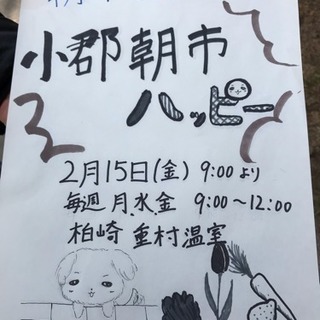 小郡朝市
ハッピー
2月15日(金) 9:00より
毎週 月、水、金 9:00〜12:00
柏崎 重村温室